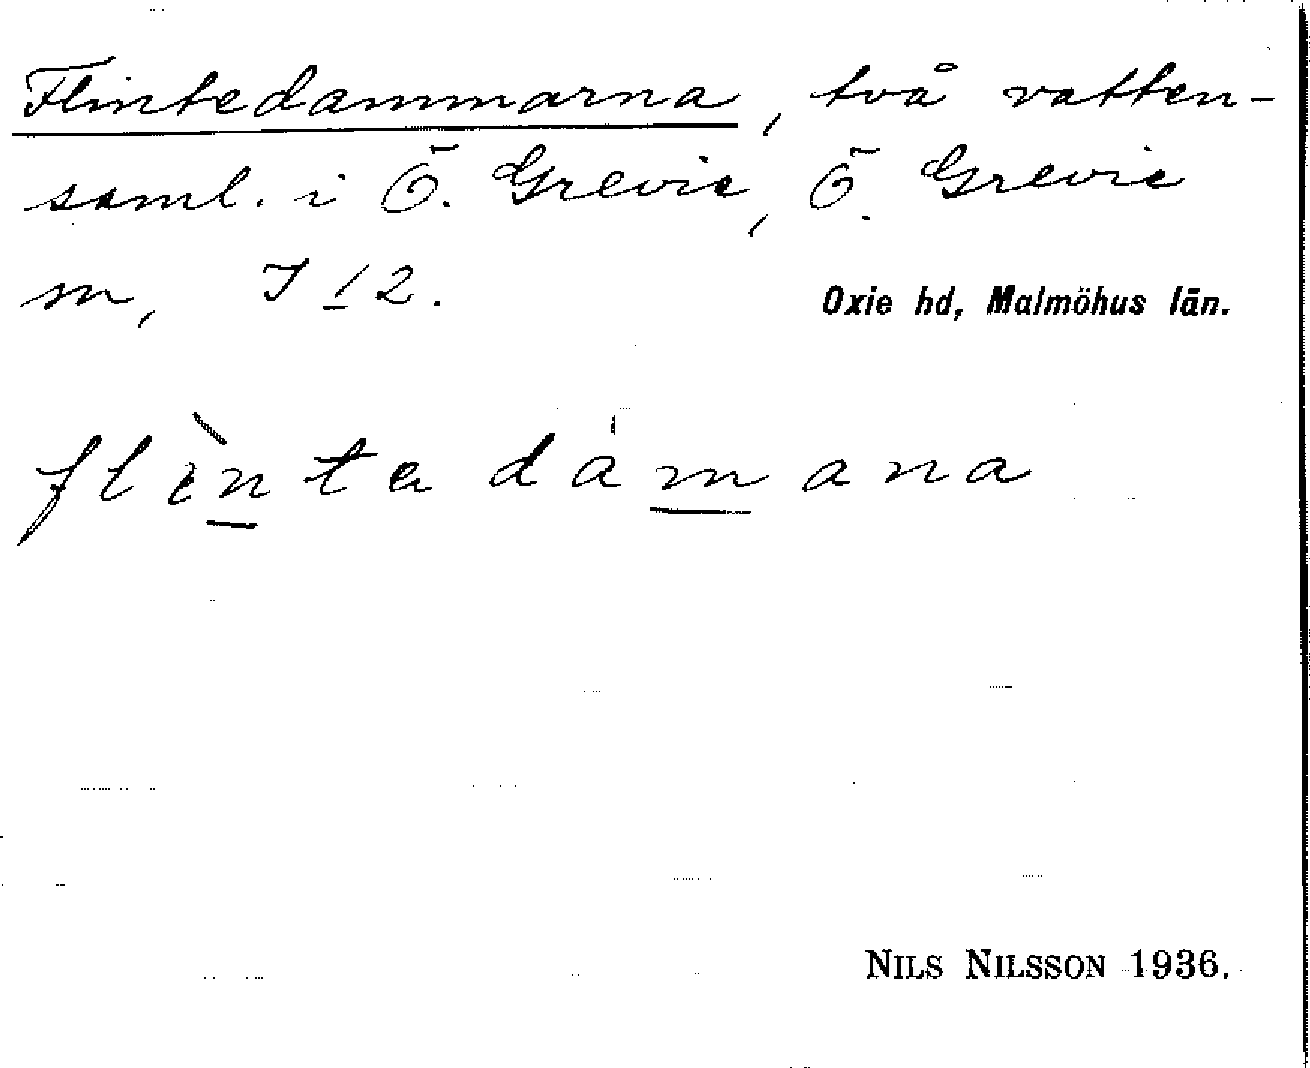 Flintedammarna, två vatten-
saml. i Ö. Grevie, Ö. Grevie
sn, I 12.
Oxie hd, Malmöhus län.
flìnta dámana
NILS NILSSON 1936.